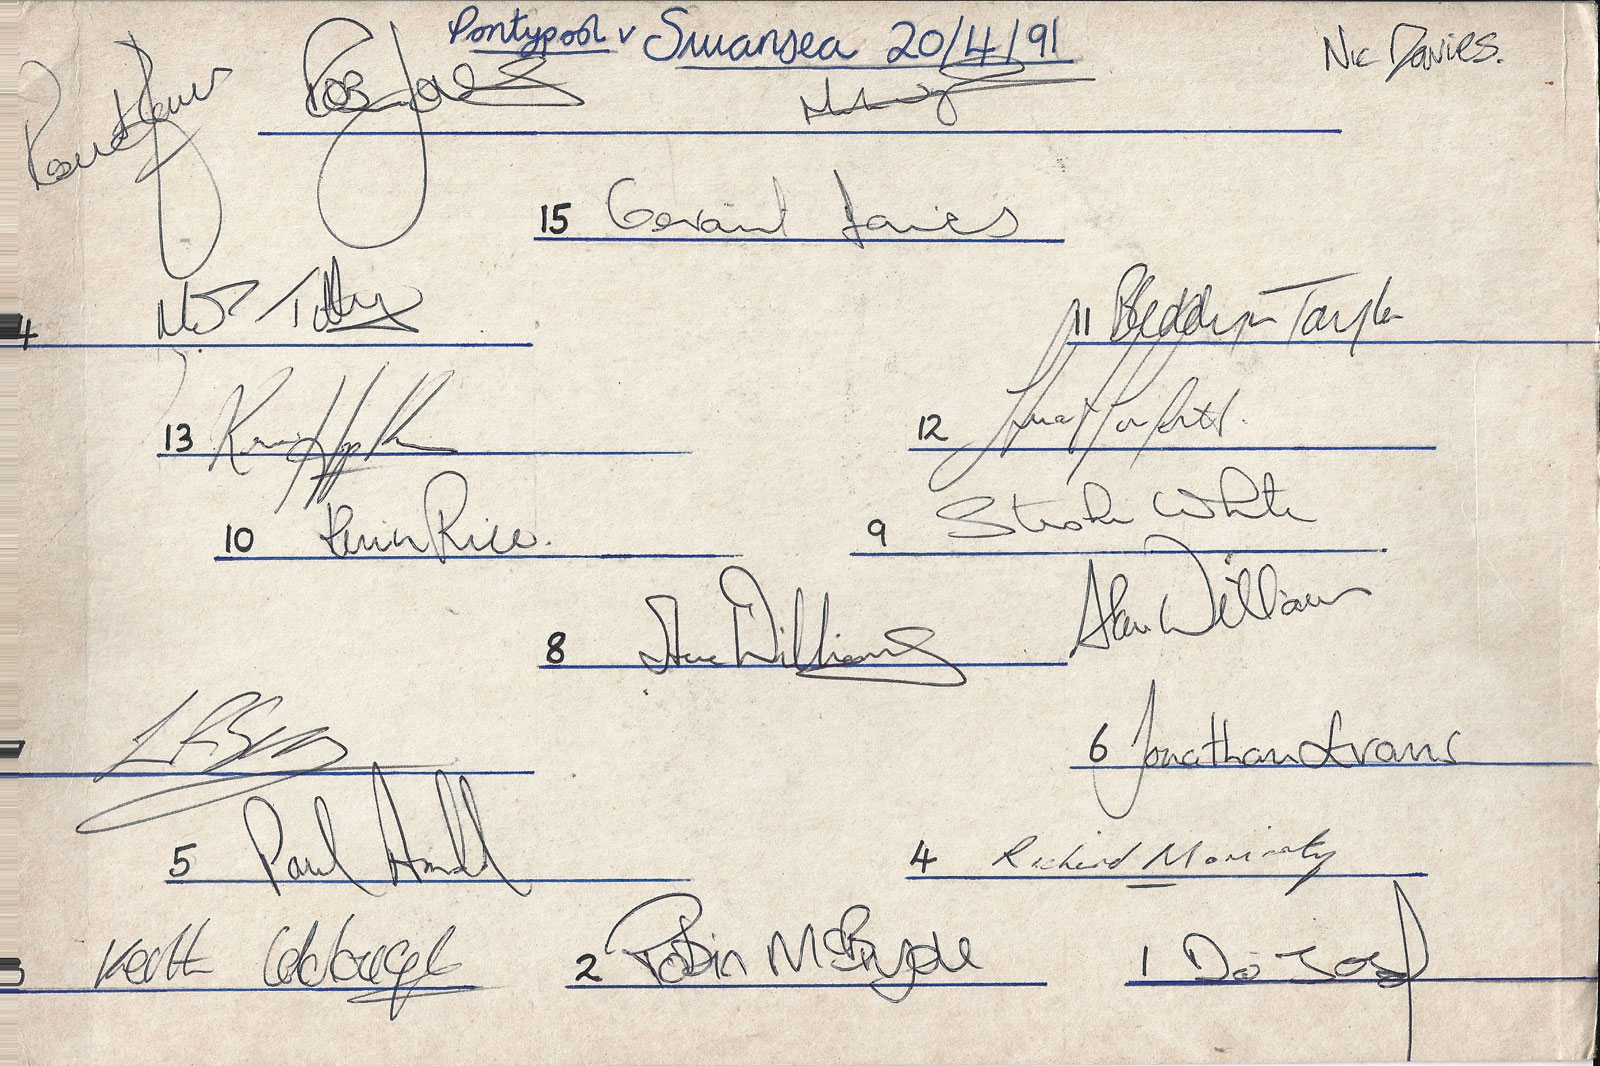 Pontypool v Swansea 20/4/91
Nic Davies.
Rob Jones
15 Geraint Davies
4 Titley
11 Bleddyn Taylor
13 Kevin Hopkins
12
10 Kevin Rice.
9 White
Alan Williams
8 Steve Williams
6 Jonathan Evans
5 Paul Arnold
4 Richard Moriarty
Keith Colclough
2 Robin McBryde
1